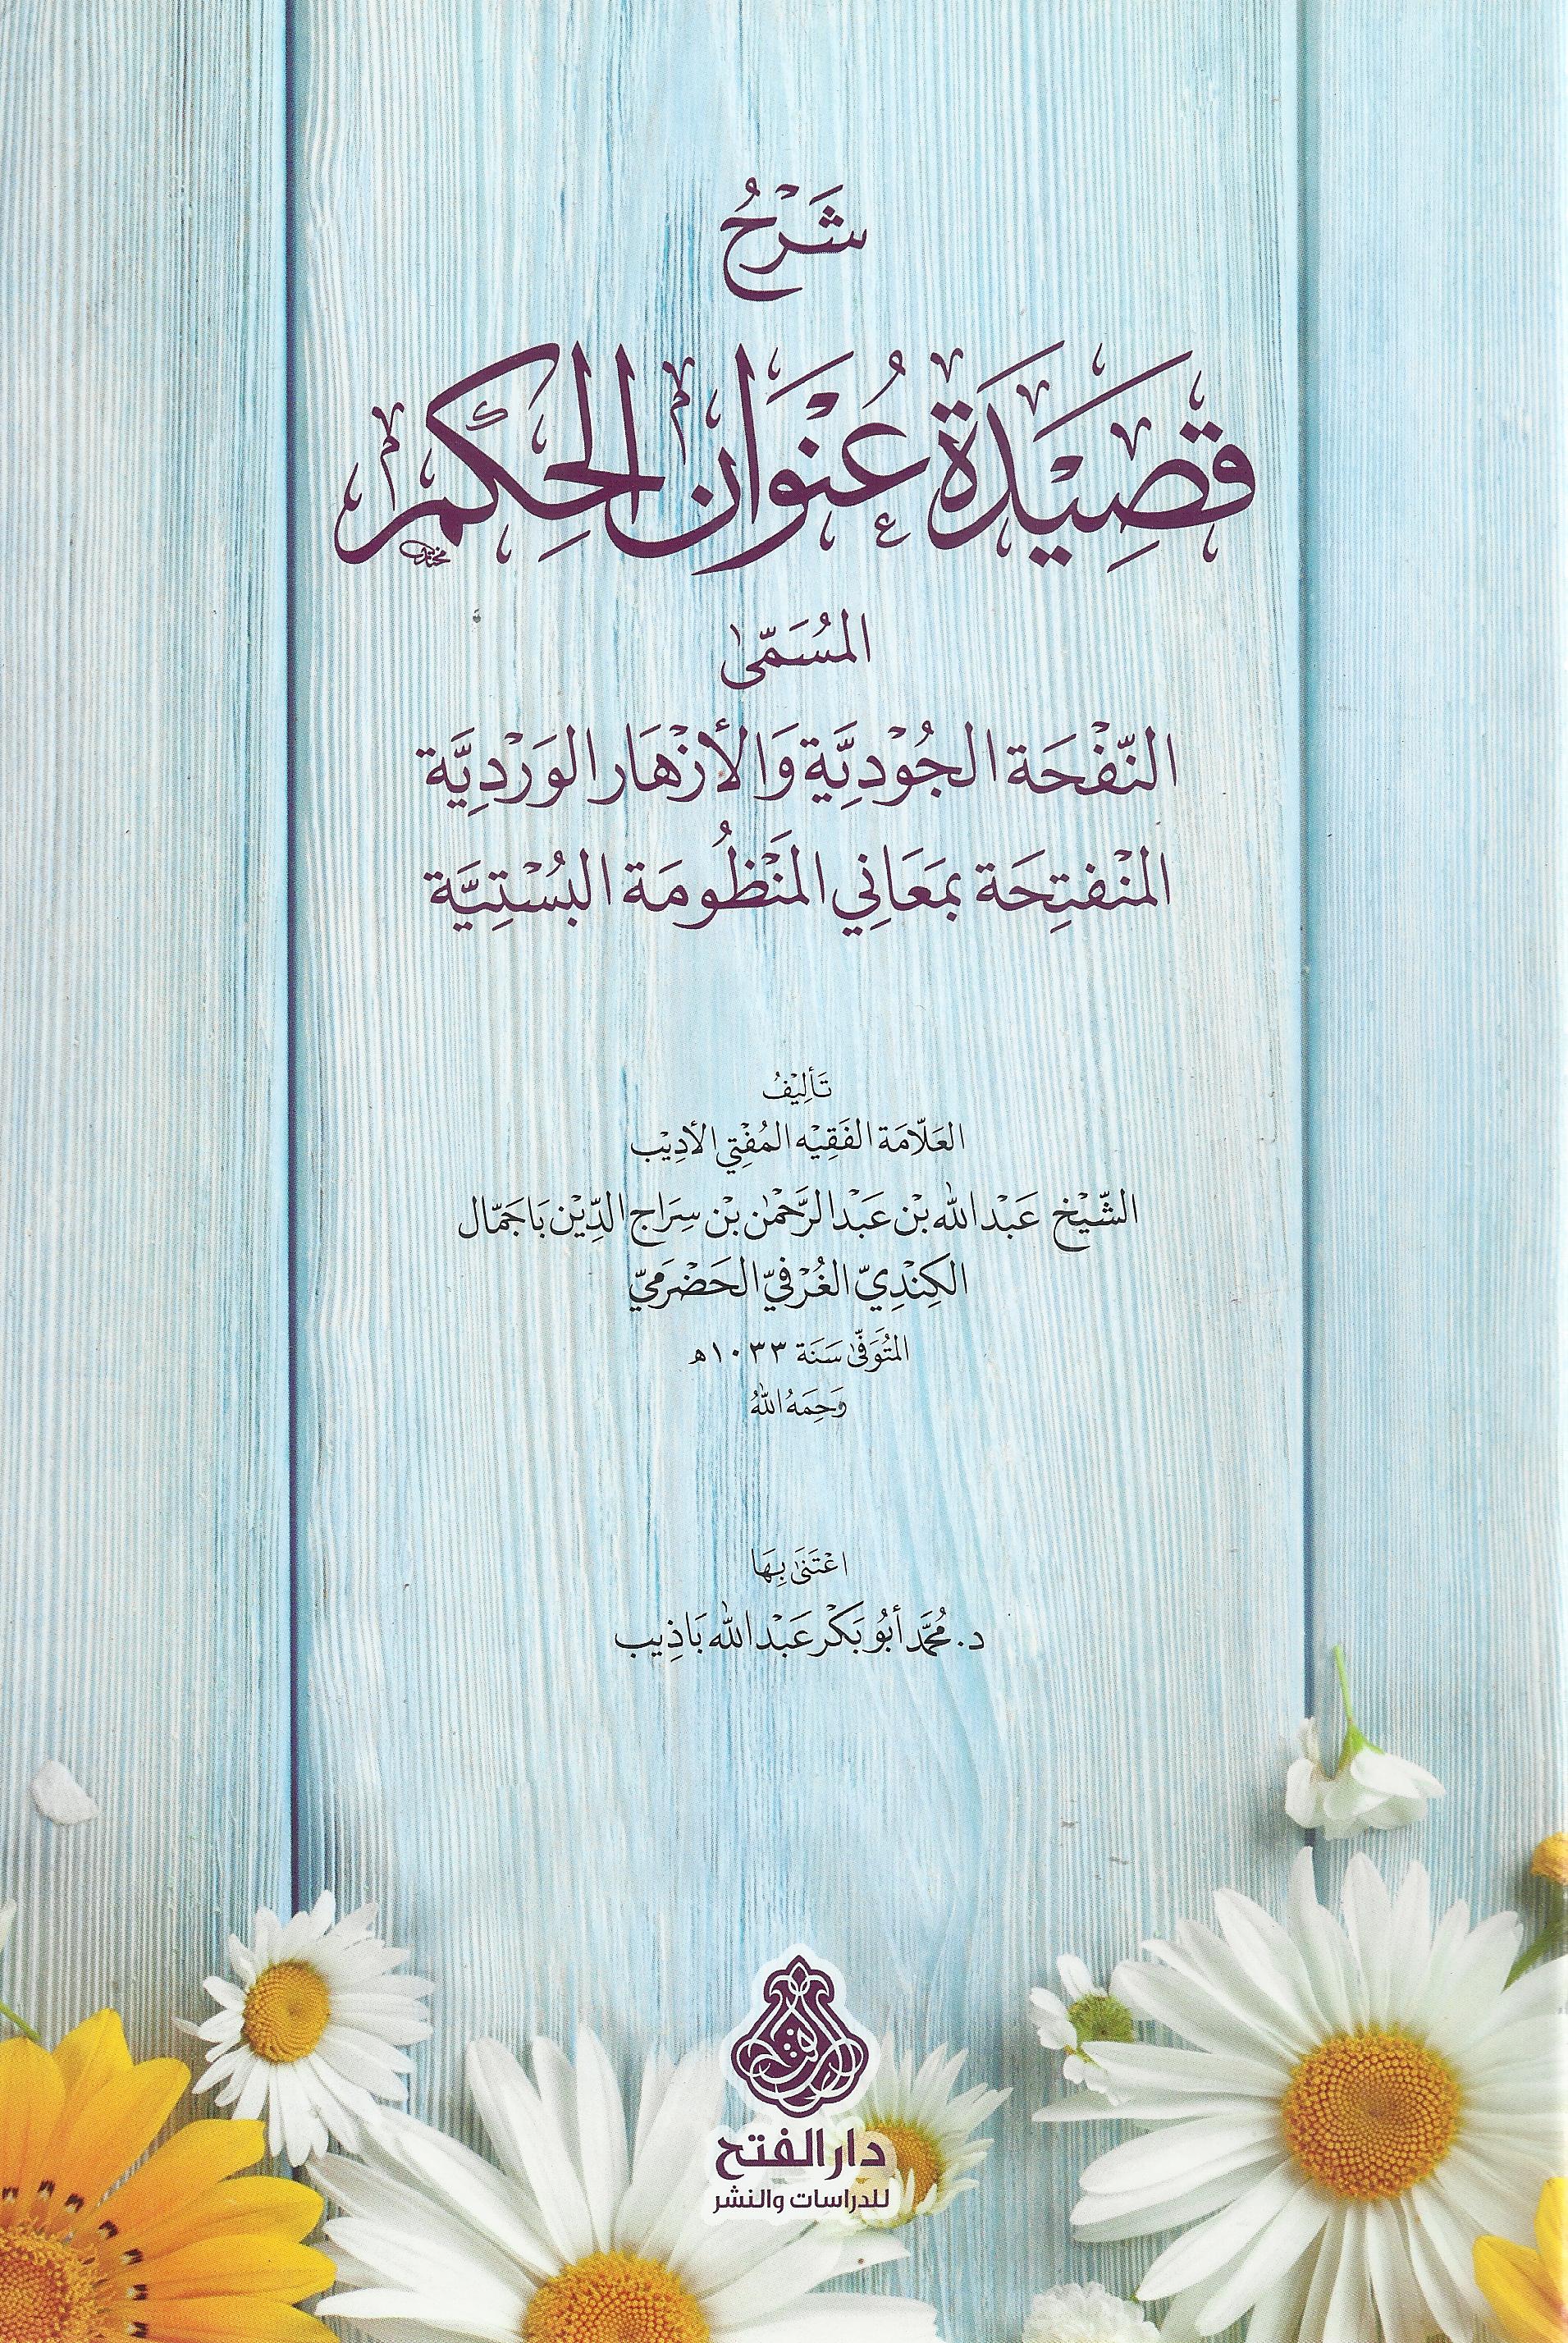 شَرْحُ
قَصِيْدَة عُنْوَان الحِكَم
المُسَمّىٰ
النّفْحَة الجُوْدِيَّة وَالأزْهَار الوَرْدِيَّة
المنْفتِحَة بمَعَانِي المَنْظُومَة البُسْتِيَّة
تَأليْفُ
العَلّامَة الفَقِيْه المُفْتِي الأدِيْب
الشّيْخ عَبْد الله بْن عَبْد الرَّحْمٰن بْن سِرَاج الدِّيْن بَاجَمّال
الكِنْدِيّ الغُرْفيّ الحَضْرَميّ
المتُوَفّىٰ سَنَة ١٠٣٣هـ
رَحِمَهُ اللهُ
اعْتَنَىٰ بِهَا
د. مُحَمَّد أبُو بَكْر عَبْد الله بَاذِيب
دار الفتح
للدراسات والنشر